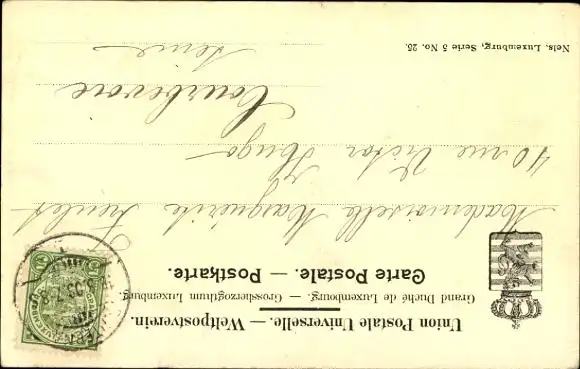 Union Postale Universelle. — Weltpostverein.
Grand Duché de Luxembourg. — Grossherzogthum Luxemburg.
Carte Postale. — Postkarte.
Mademoiselle Marguerite
40 rue Victor Hugo
Courbevoie
Seine
Nels, Luxemburg, Serie 5 No. 25.